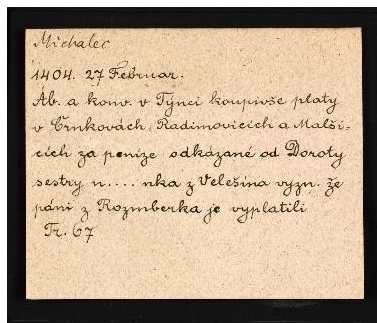 Michalec
1404. 27 Februar.
Ab. a konv. v Týnci koupivše platy
v Črnkovách, Radimovicích a Malši-
cích za peníze odkázané od Doroty
sestry n.... nka z Velešína vyzn. že
páni z Rozmberka je vyplatili
Tr. 67